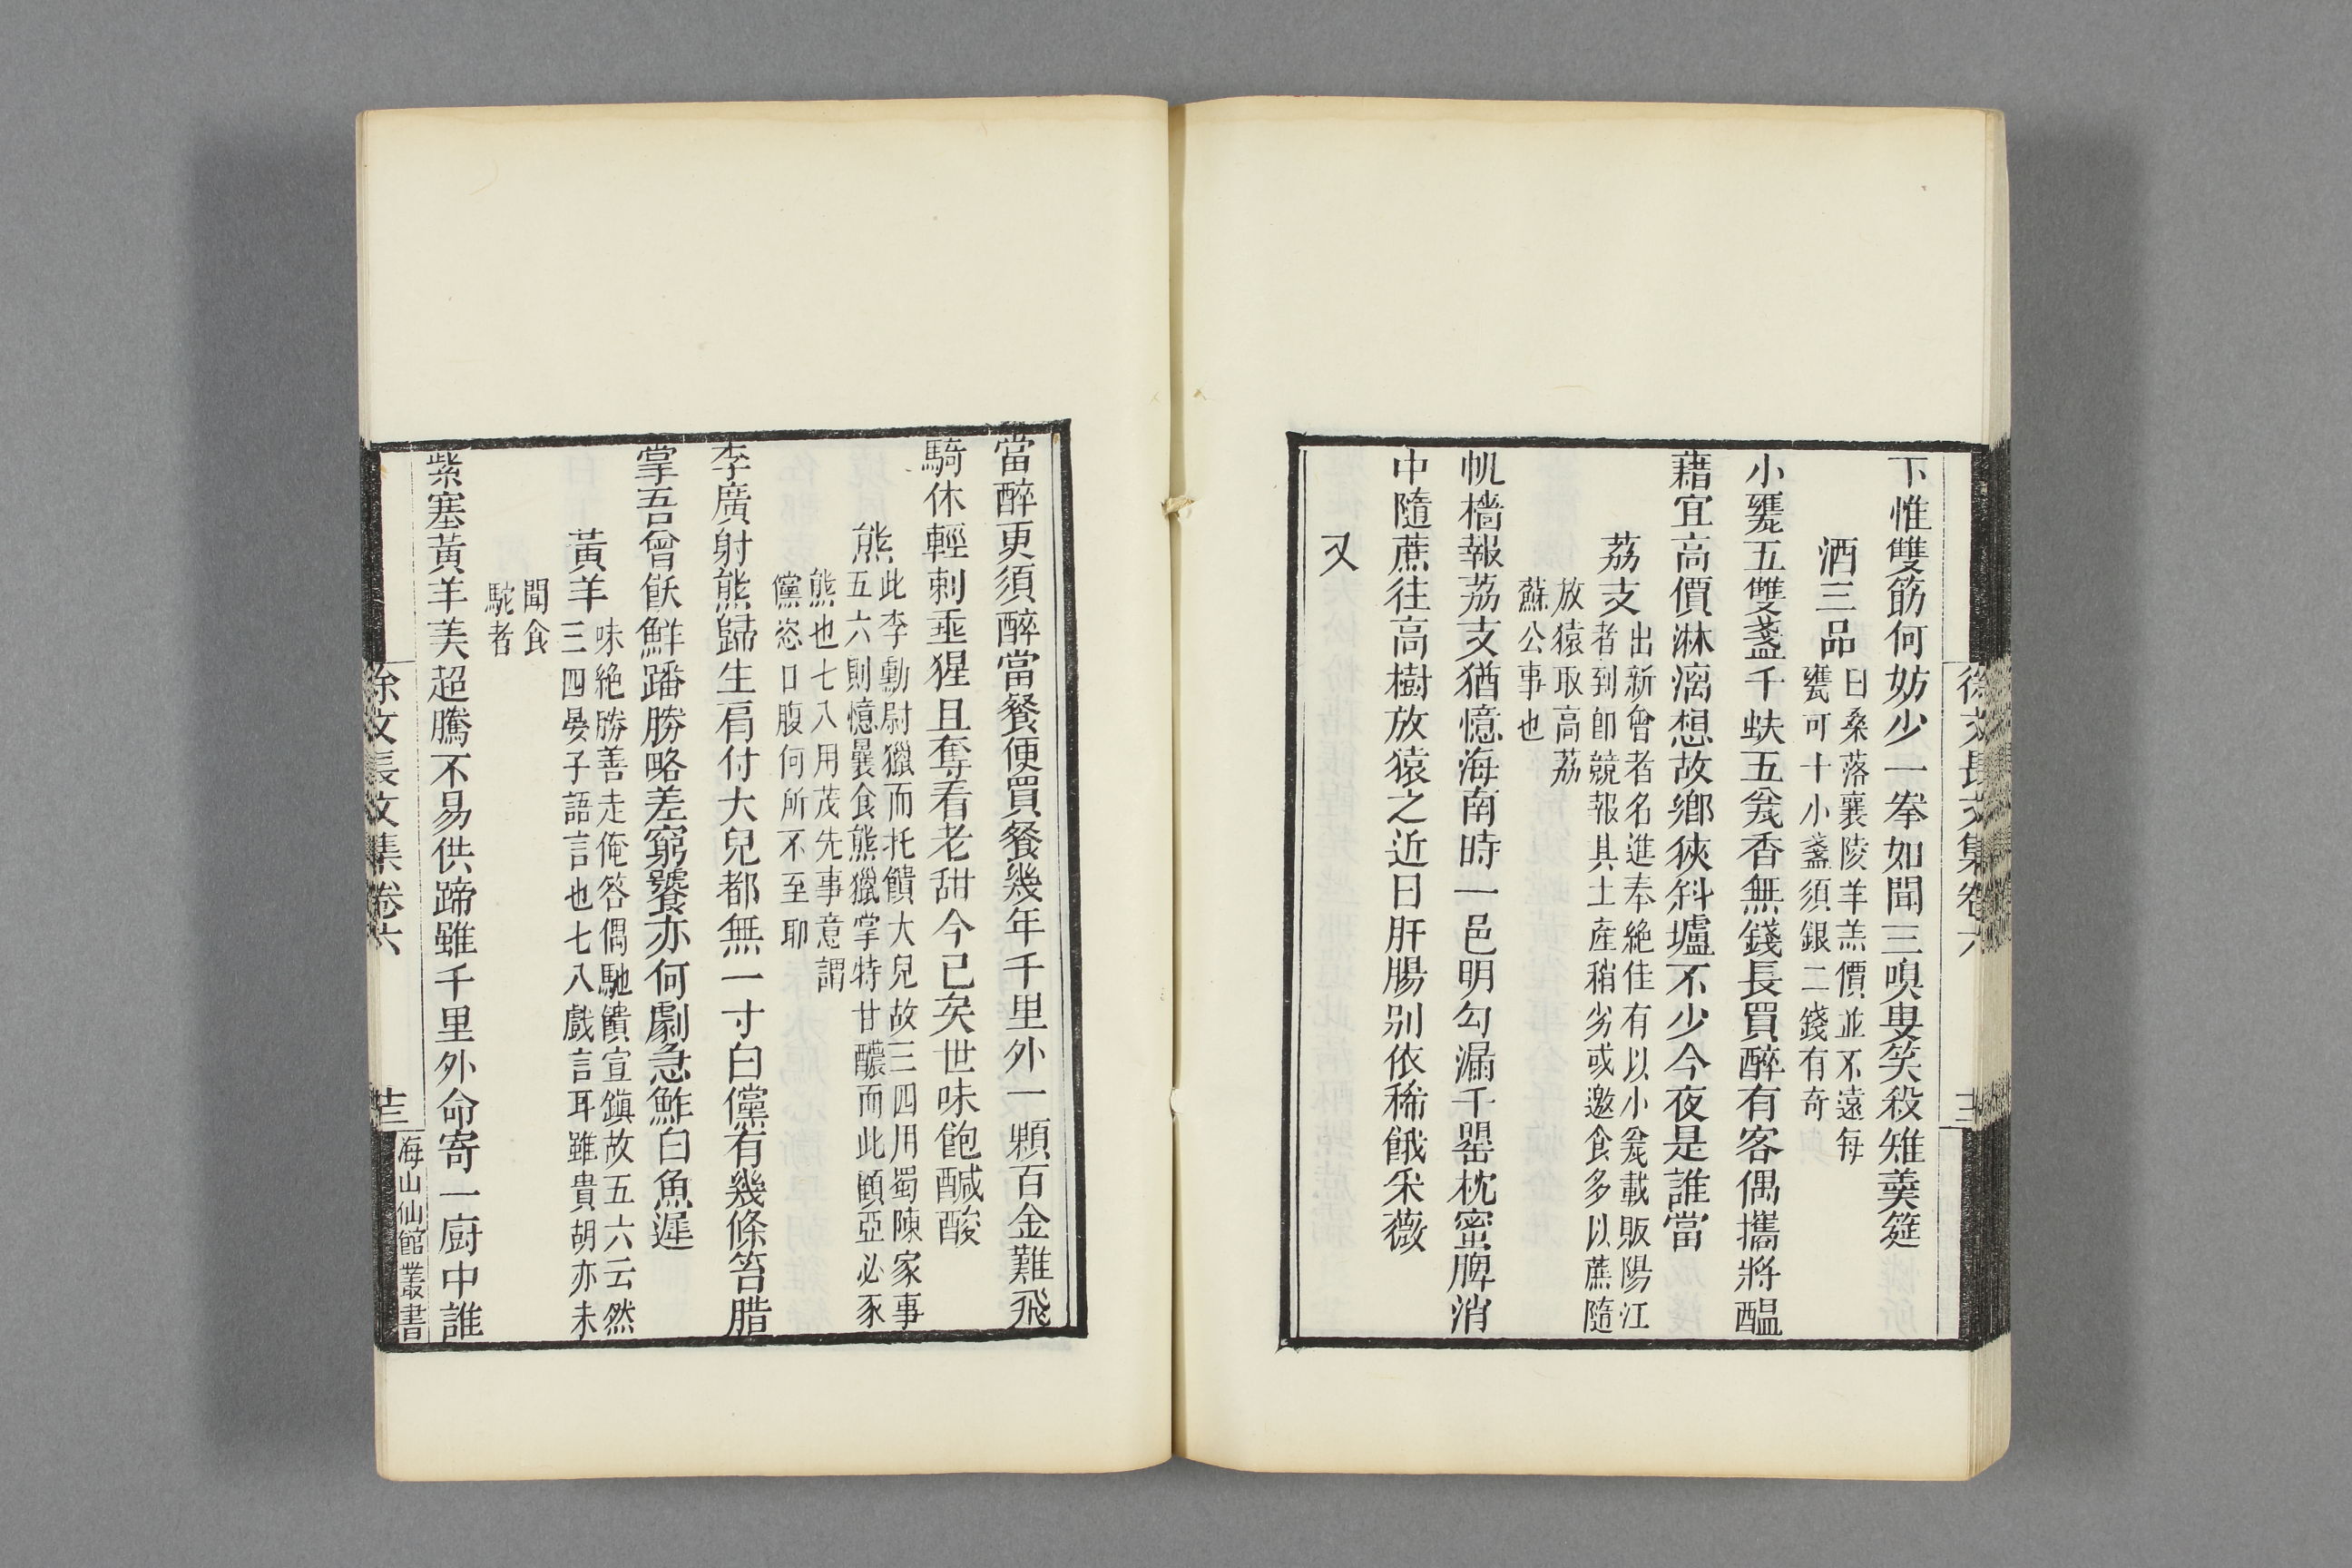 徐文長文集卷六
下惟雙筯何妨少一拳如聞三嗅叟笑殺雉羹筵
酒三品
日桑落襄陵羊羔價並不遠每
甕可十小盞須銀二錢有奇
小甕五雙盞千蚨五瓮香無錢長買醉有客偶攜將醞
藉宜高價淋漓想故鄉狹斜壚不少今夜是誰當
荔支
出新會者名進奉絶佳有以小瓮載販陽江
者到卽競報其土産稍劣或邀食多以蔗隨
放猿取高荔
蘇公事也
帆檣報荔支猶憶海南時一邑明勾漏千罌枕蜜脾消
中隨蔗往高樹放猿之近日肝腸别依稀餓采薇
又
當醉更須醉當餐便買餐幾年千里外一顆百金難飛
騎休輕刺垂猩且奪看老甜今已矣世味飽醎酸
熊
此李勳尉獵而托饋大兒故三四用蜀陳家事
五六則憶曩食熊獵掌特甘醲而此顧亞必豕
熊也七八用茂先事意謂
儻恣口腹何所不至耶
李廣射熊歸生肩付大兒都無一寸白儻有幾條笞腊
掌吾曾飫鮮蹯勝略差窮饕亦何劇急鮓白魚遲
黃羊
味絶勝善走俺答偶馳饋宣鎭故五六云然
三四晏子語言也七八戲言耳雖貴胡亦未
聞食
駝者
紫塞黃羊美超騰不易供蹄雖千里外命寄一廚中誰
徐文長文集卷六
海山仙館叢書